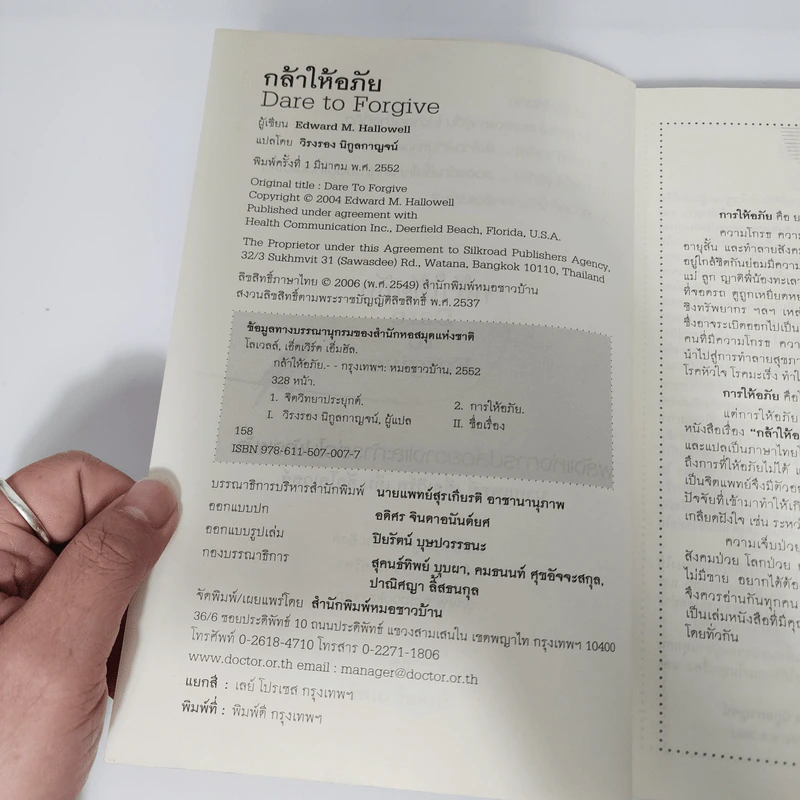 กล้าให้อภัย
Dare to Forgive
ผู้เขียน Edward M. Hallowell
แปลโดย วิรงรอง นิกูลกาญจน์
พิมพ์ครั้งที่ 1 มีนาคม พ.ศ. 2552
Original title : Dare To Forgive
Copyright © 2004 Edward M. Hallowell
Published under agreement with
Health Communication Inc., Deerfield Beach, Florida, U.S.A.
The Proprietor under this Agreement to Silkroad Publishers Agency,
32/3 Sukhmvit 31 (Sawasdee) Rd., Watana, Bangkok 10110, Thailand
ลิขสิทธิ์ภาษาไทย © 2006 (พ.ศ. 2549) สำนักพิมพ์หมอชาวบ้าน
สงวนลิขสิทธิ์ตามพระราชบัญญัติลิขสิทธิ์ พ.ศ. 2537
ข้อมูลทางบรรณานุกรมของสำนักหอสมุดแห่งชาติ
โลเวลล์, เอ็ดเวิร์ด เอ็มฮัล.
กล้าให้อภัย.- - กรุงเทพฯ: หมอชาวบ้าน, 2552
328 หน้า.
1. จิตวิทยาประยุกต์. 2. การให้อภัย.
I. วิรงรอง นิกูลกาญจน์, ผู้แปล II. ชื่อเรื่อง
158
ISBN 978-611-507-007-7
บรรณาธิการบริหารสำนักพิมพ์ นายแพทย์สุรเกียรติ อาชานานุภาพ
ออกแบบปก อดิศร จินดาอนันต์ยศ
ออกแบบรูปเล่ม ปิยรัตน์ บุษปวรรธนะ
กองบรรณาธิการ สุคนธ์ทิพย์ บุบผา, คมธนนท์ ศุขอัจจะสกุล,
ปาณิศญา ลิ้สธนกุล
จัดพิมพ์/เผยแพร่โดย สำนักพิมพ์หมอชาวบ้าน
36/6 ซอยประดิพัทธ์ 10 ถนนประดิพัทธ์ แขวงสามเสนใน เขตพญาไท กรุงเทพฯ 10400
โทรศัพท์ 0-2618-4710 โทรสาร 0-2271-1806
www.doctor.or.th email : manager@doctor.or.th
แยกสี : เลย์ โปรเซส กรุงเทพฯ
พิมพ์ที่ : พิมพ์ดี กรุงเทพฯ
การให้อภัย คือ
ความโกรธ
อายุสั้น และทำลายสังคม
อยู่ใกล้ชิดกันย่อมมีความ
แม่ ลูก ญาติพี่น้องทะเลาะ
ที่จอดรถ ดูถูกเหยียดหยาม
ชิงทรัพยากร ฯลฯ
ซึ่งอาจระเบิดออกไปเป็น
คนที่มีความโกรธ
นำไปสู่การทำลายสุขภาพ
โรคหัวใจ โรคมะเร็ง
การให้อภัย คือ
แต่การให้อภัย
หนังสือเรื่อง "กล้าให้
และแปลเป็นภาษาไทย
ถึงการที่ให้อภัยไม่ได้
เป็นจิตแพทย์จึงมีตัวอย่าง
ปัจจัยที่เข้ามาทำให้
เกลียดฝังใจ เช่น
ความเจ็บป่วย
สังคมป่วย โลกป่วย
ไม่มีขาย อยากได้ต้อง
จึงควรอ่านกันทุกคน
เป็นเล่มหนังสือที่มี
โดยทั่วกัน